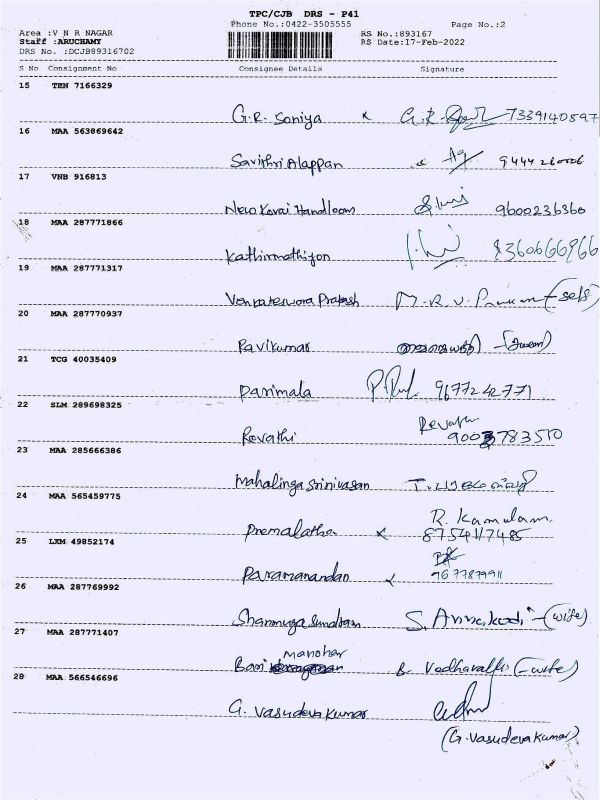 TPC/CJB DRS - P41
Phone No.:0422-3505555
Page No.:2
Area :V N R NAGAR
RS No.:893167
Staff :ARUCHAMY
RS Date:17-Feb-2022
DRS No. :DCJB89316702
S No Consignment No Consignee Details Signature
15 TEN 7166329
G.R. Soniya x G.R. 7339140597
16 MAA 563869642
Savithri Alappan
17 VNB 916813
New Kovai Handloom 9600236360
18 MAA 287771866
Kathirmathiyon 8360666966
19 MAA 287771317
Venkateswara Prakash M.R.V. (self)
20 MAA 287770937
Ravikumar
21 TCG 40035409
Parimala 9677242771
22 SLM 289698325
Revathi
Revathi 9003783510
23 MAA 285666386
Mahalinga Srinivasan
24 MAA 565459775
R. Kamalam.
Premalatha x 8754117485
25 LXM 49852174
Paramanandan 9677879911
26 MAA 287769992
Shanmuga Sundram S. (wife)
27 MAA 287771407
manohar
B. Vedhavalli (-wife)
28 MAA 566546696
G. Vasudeva Kumar
(G. Vasudeva Kumar)